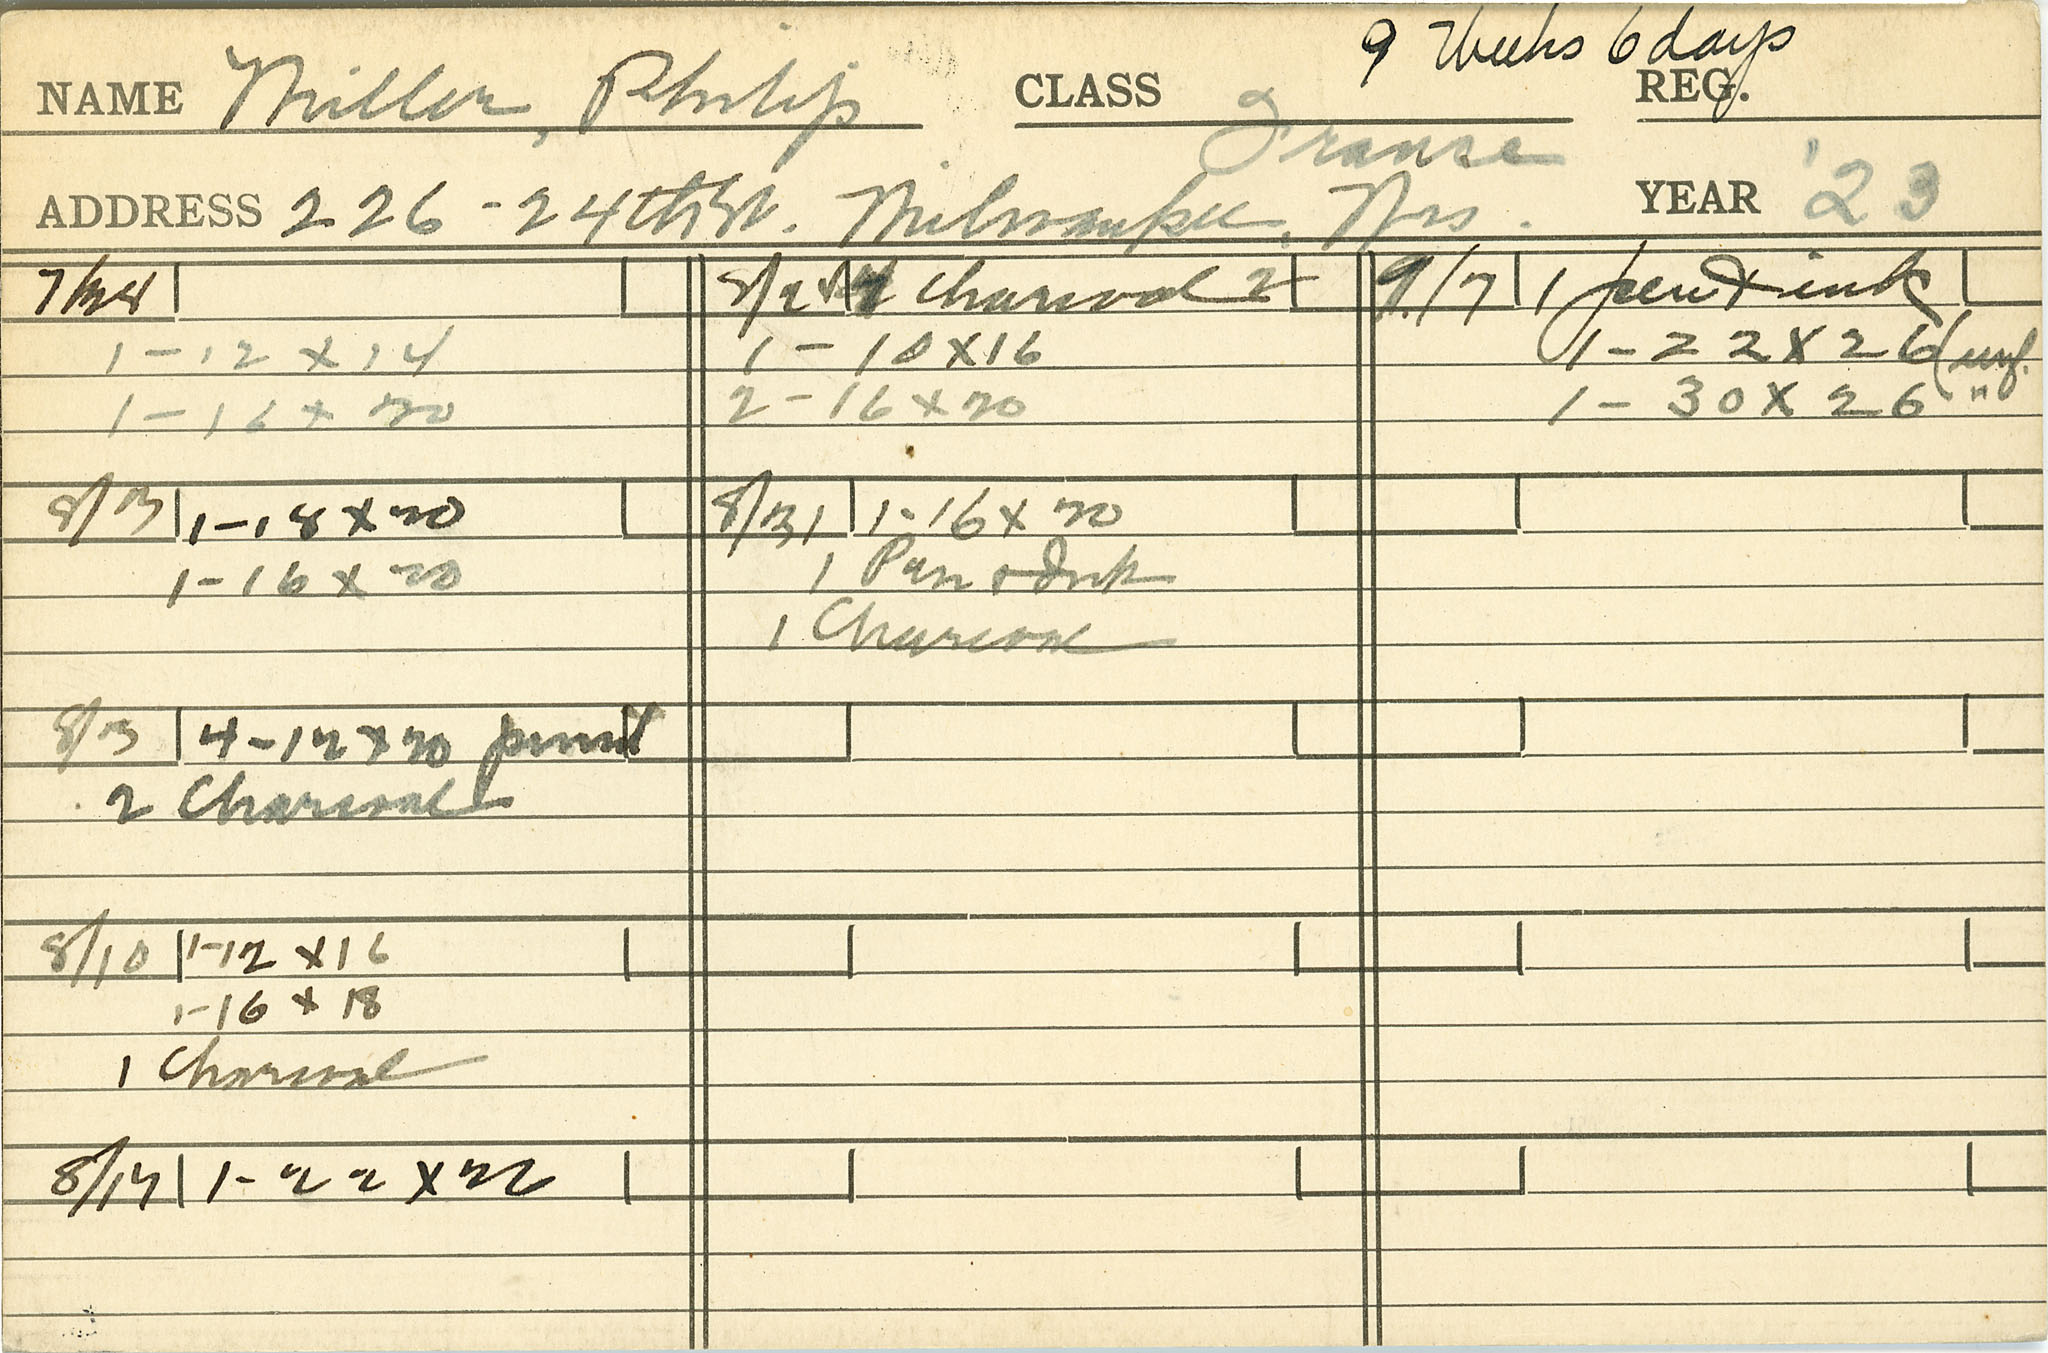 9 Weeks 6 days
NAME Miller, Philip CLASS REG.
France
ADDRESS 226-24th St. Milwaukee, Wis. YEAR '23
1-12 x 14
1-16 x 20
8/3 1-18 x 20
1-16 x 20
8/3 4-12 x 20
2 Charcoal
8/10 1-12 x 16
1-16 x 18
1 Charcoal
8/17 1-22 x 22
8/24 Charcoal 2
1-10 x 16
2-16 x 20
8/31 1-16 x 20
1 Pen & Ink
1 Charcoal
9/7 1 pen & ink
1-22 x 26 (unf.
1-30 x 26 "